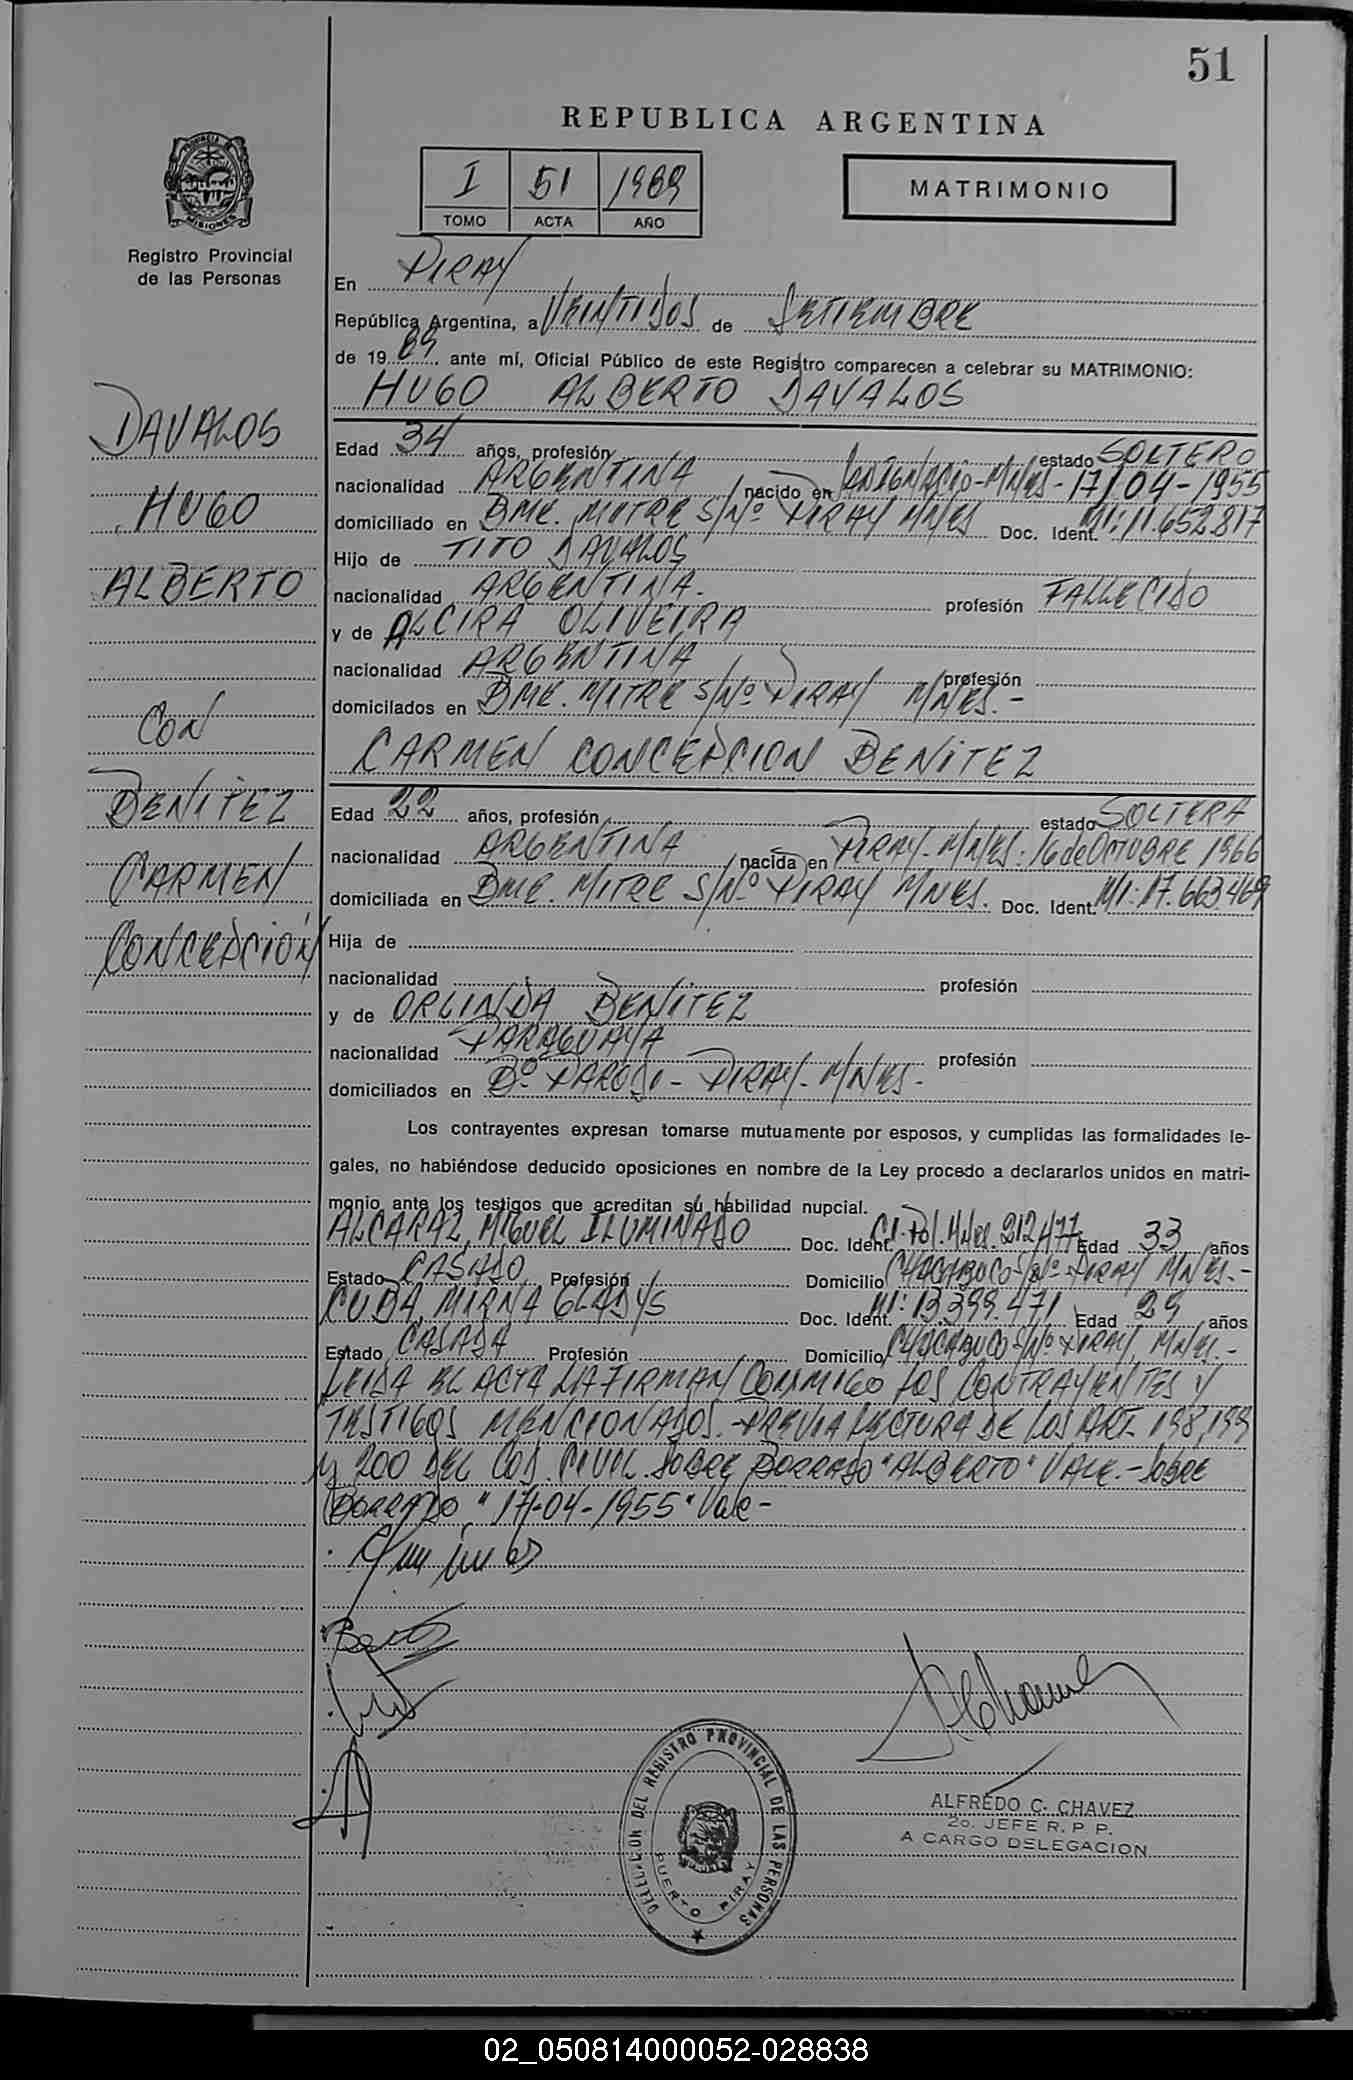 51
REPUBLICA ARGENTINA
I 51 1989
TOMO ACTA AÑO
MATRIMONIO
PROVINCIA DE
MISIONES
Registro Provincial
de las Personas
En PIRAY
República Argentina, a VEINTIDOS de SETIEMBRE
de 19 89 ante mí, Oficial Público de este Registro comparecen a celebrar su MATRIMONIO:
HUGO ALBERTO DAVALOS
DAVALOS
HUGO
ALBERTO
CON
BENITEZ
CARMEN
CONCEPCIÓN
Edad 34 años, profesión estado SOLTERO
nacionalidad ARGENTINA nacido en SAN IGNACIO-MNES- 17/04-1955
domiciliado en BME. MITRE S/Nº PIRAY MNES Doc. Ident. MI: 11.652.817
Hijo de TITO DAVALOS
nacionalidad ARGENTINA. profesión FALLECIDO
y de ALCIRA OLIVEIRA
nacionalidad ARGENTINA profesión
domicilados en BME. MITRE S/Nº PIRAY MNES.-
CARMEN CONCEPCION BENITEZ
Edad 22 años, profesión estado SOLTERA
nacionalidad ARGENTINA nacida en PIRAY-MNES: 16 de OCTUBRE 1966
domiciliada en BME. MITRE S/Nº PIRAY MNES. Doc. Ident. MI: 17.663.469
Hija de
nacionalidad profesión
y de ORLINDA BENITEZ
nacionalidad PARAGUAYA profesión
domiciliados en Bº - PIRAY-MNES-
Los contrayentes expresan tomarse mutuamente por esposos, y cumplidas las formalidades le-
gales, no habiéndose deducido oposiciones en nombre de la Ley procedo a declararlos unidos en matri-
monio ante los testigos que acreditan su habilidad nupcial.
ALCARAZ, MIGUEL ILUMINADO Doc. Ident. CI. Pol. Mnes. 212.477 Edad 33 años
Estado CASADO Profesión Domicilio CHACABUCO S/Nº PIRAY MNES.-
CUBA, MIRNA GLADYS Doc. Ident. MI: 13.399.471 Edad 29 años
Estado CASADA Profesión Domicilio CHACABUCO S/Nº PIRAY, MNES.-
LEIDA EL ACTA LA FIRMAN CONMIGO LOS CONTRAYENTES Y
TESTIGOS MENCIONADOS.-PREVIA LECTURA DE LOS ART. 198,199
y 200 DEL COD. CIVIL. SOBRE BORRADO "ALBERTO" VALE.-SOBRE
BORRADO "17-04-1955" Vale-
ALFREDO C. CHAVEZ
2o. JEFE R. P. P.
A CARGO DELEGACION
DELEGACION DEL REGISTRO PROVINCIAL DE LAS PERSONAS
PUERTO PIRAY
02_050814000052-028838